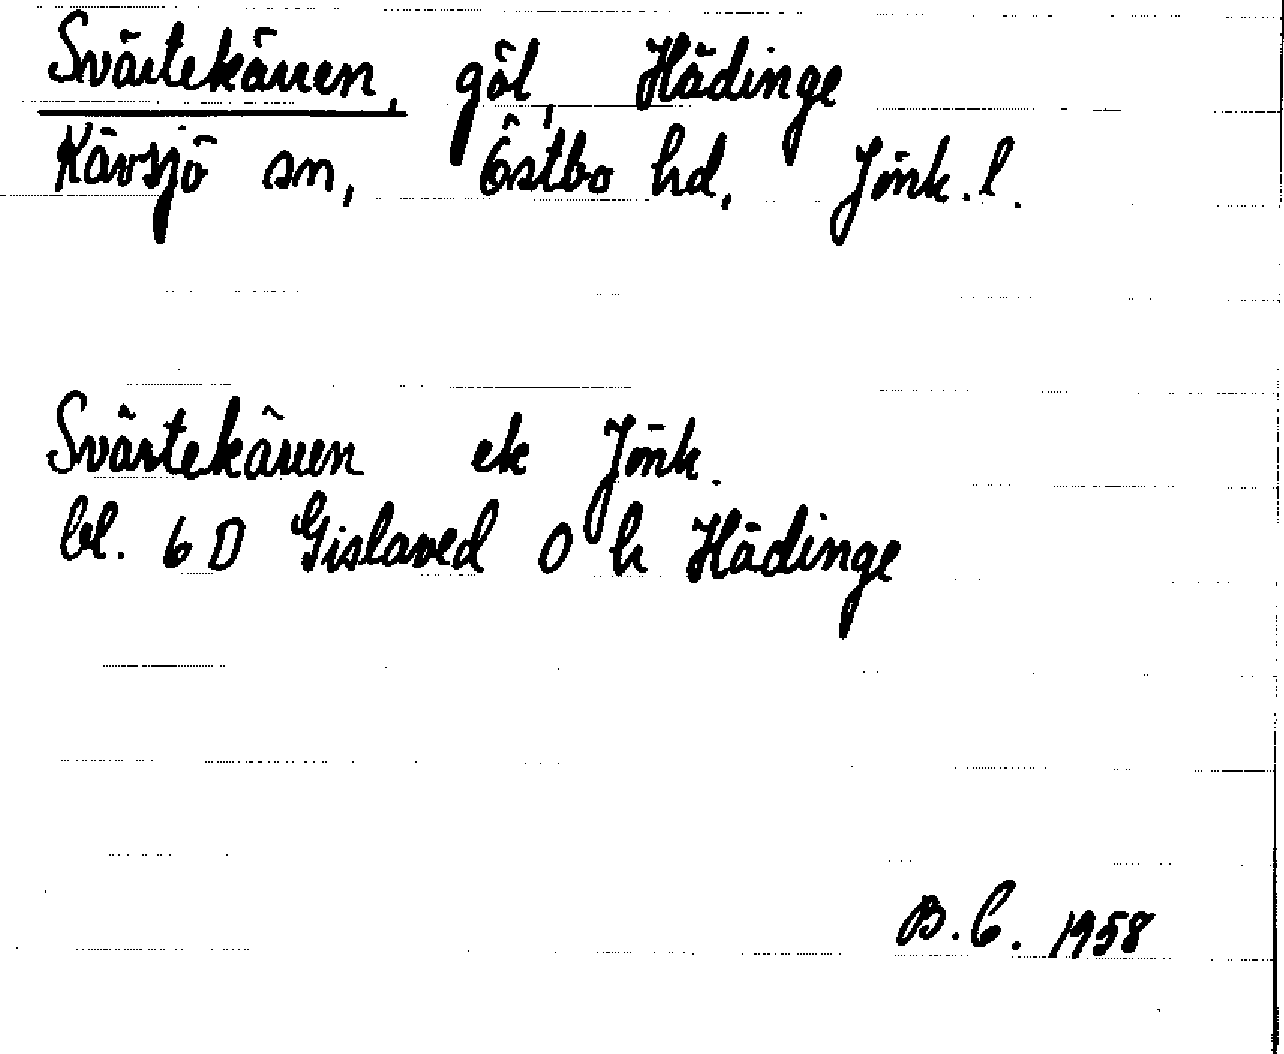 Svärtekärren, göl, Hädinge
Kävsjö sn, Östbo hd, Jönk. l.
Svärtekärren ek Jönk.
bl. 6 D Gislaved 0 h Hädinge
B. C. 1958